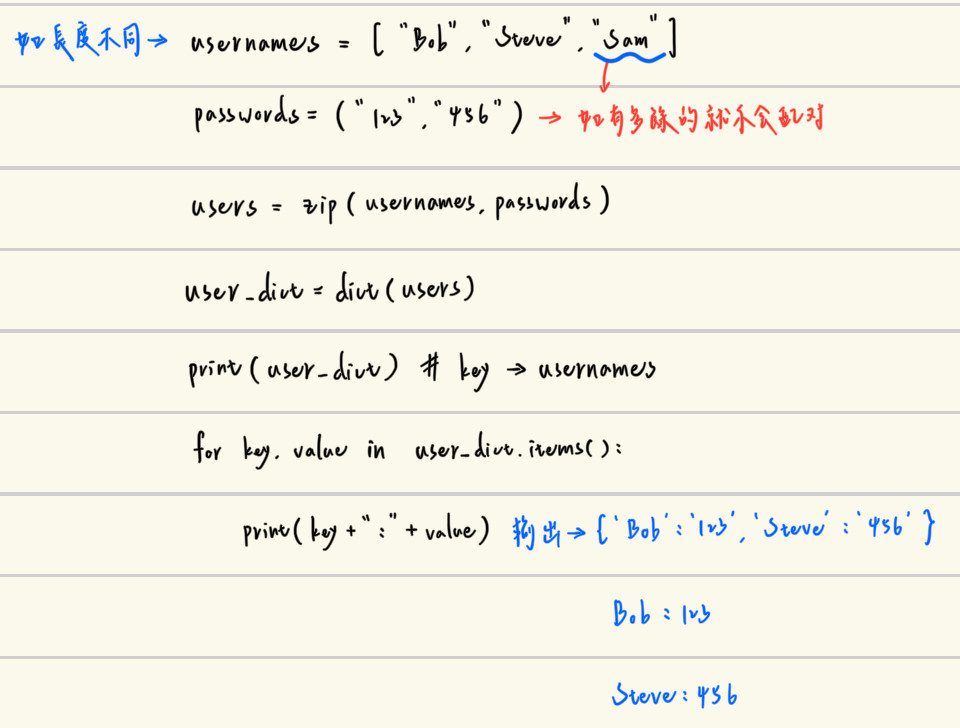 如長度不同→ usernames = [ "Bob", "Steve", "Sam" ]
passwords = ( "123", "456" ) → 如有多除的就不会配对
users = zip ( usernames, passwords )
user_dict = dict ( users )
print ( user_dict ) # key → usernames
for key, value in user_dict.items():
print( key + ":" + value ) 输出→ { 'Bob' : '123', 'Steve' : '456' }
Bob : 123
Steve : 456